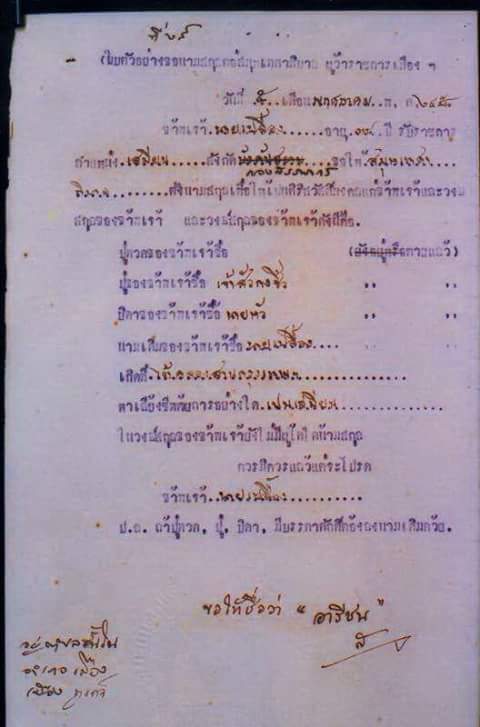 ที่ ๒๙
(ใบตัวอย่างขอนามสกุลต่อสมุหเทศาภิบาล ผู้ว่าราชการเมือง ๆ
วันที่ ๕...เดือนพฤศภาคม..พ, ศ ๒๔๕
ข้าพเจ้า.นายเปลื้อง......อายุ. ปี รับราชการ
ตำแหน่ง.เสมียน.....สังกัด ....ขอให้.สมุหเทศา
ภิบาล........ตั้งนามสกุลเพื่อให้เปนศิริสวัสดิ์มงคลแก่ข้าพเจ้าและวงษ์
สกุลของข้าพเจ้า และวงษ์สกุลของข้าพเจ้าดังนี้คือ.
ปู่ทวดของข้าพเจ้าชื่อ (ยังอยู่หรือตายแล้ว)
ปู่ของข้าพเจ้าชื่อ เจ้าสัว " "
บิดาของข้าพเจ้าชื่อ นายหัว " "
นามเดิมของข้าพเจ้าชื่อ.นายเปลื้อง.... " "
เกิดที่
หาเลี้ยงชีพด้วยการอย่างใด.เปนเสมียน................
ในวงษ์สกุลของข้าพเจ้ายังไม่มีผู้ใดได้นามสกุล
ควรมิควรแล้วแต่จะโปรด
ข้าพเจ้า..นายเปลื้อง...........
ป.ล. ถ้าปู่ทวด, ปู่, บิดา, มีบรรดาศักดิ์ต้องลงนามเดิมด้วย.
ขอให้ชื่อว่า "อารีชน"
อำเภอ เมือง